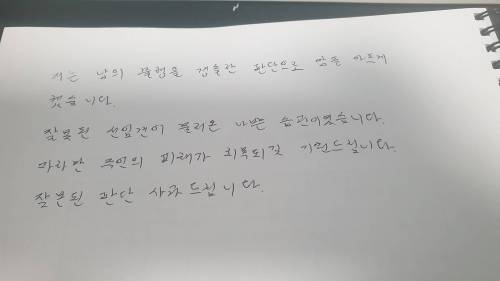 저는 남의 불행을 경솔한 판단으로 맘을 아프게
했습니다.
잘못된 선입견이 불러온 나쁜 습관이였습니다.
마라탕 주인의 피해가 회복되길 기원드립니다.
잘못된 판단 사과드립니다.